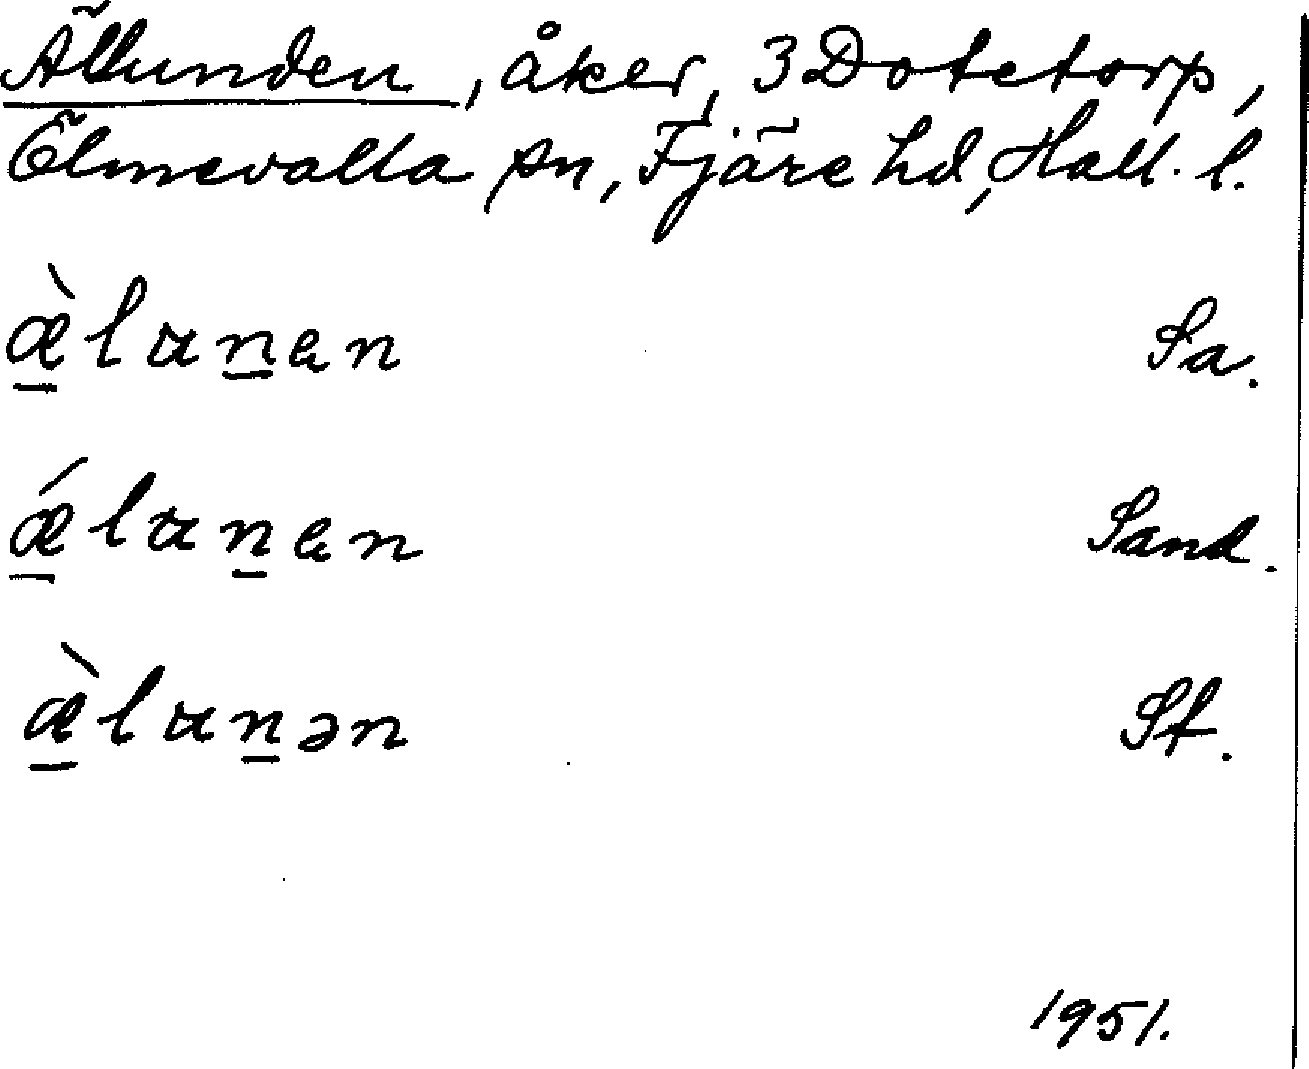 Ällunden, åker, 3 Dotetorp,
Ölmevalla sn, Fjäre hd, Hall. l.
æ̀lunen Sa.
ǽlunen Sand.
æ̀lunən Sf.
1951.